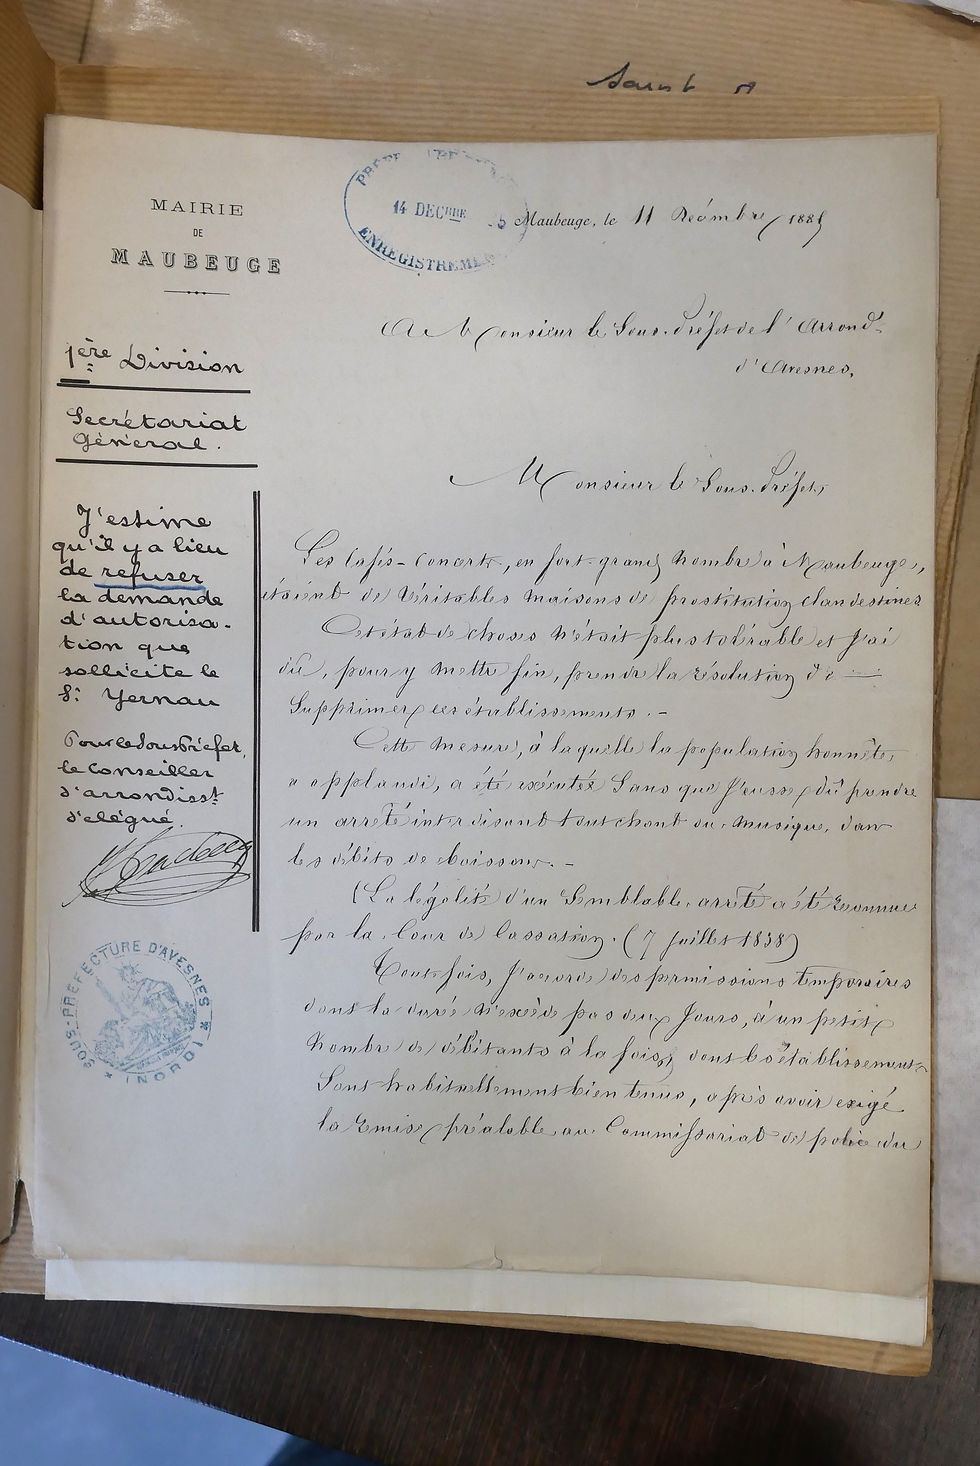 MAIRIE
DE
MAUBEUGE
14 DECBRE
ENREGISTREMENT
Maubeuge, le 11 Décembre 1885
A Monsieur le Sous-Préfet de l'Arrondt
d'Avesnes.
1ère Division
Secrétariat
Général.
J'estime
qu'il y a lieu
de refuser
la demande
d'autorisa-
tion que
sollicite le
Sr Yernau
Pour le Sous Préfet,
le Conseiller
d'arrondisst
délégué.
SOUS-PRÉFECTURE D'AVESNES * (NORD) *
Monsieur le Sous-Préfet,
Les Cafés-Concerts, en fort grand nombre à Maubeuge,
étaient de véritables maisons de prostitution clandestines
Cet état de choses n'était plus tolérable et j'ai
dû, pour y mettre fin, prendre la résolution de
supprimer ces établissements.-
Cette mesure, à laquelle la population honnête,
a applaudi, a été exécutée sans que j'eusse dû prendre
un arrêté interdisant tout chant ou musique, dans
les débits de boissons.-
(La légalité d'un semblable arrêté a été reconnue
par la Cour de Cassation. (7 Juillet 1838)
Toutefois, j'accorde des permissions temporaires
dont la durée n'excède pas deux jours, à un petit
nombre de débitants à la fois, dont les établissements
sont habituellement bien tenus, après avoir exigé
la remise préalable au Commissariat de police du